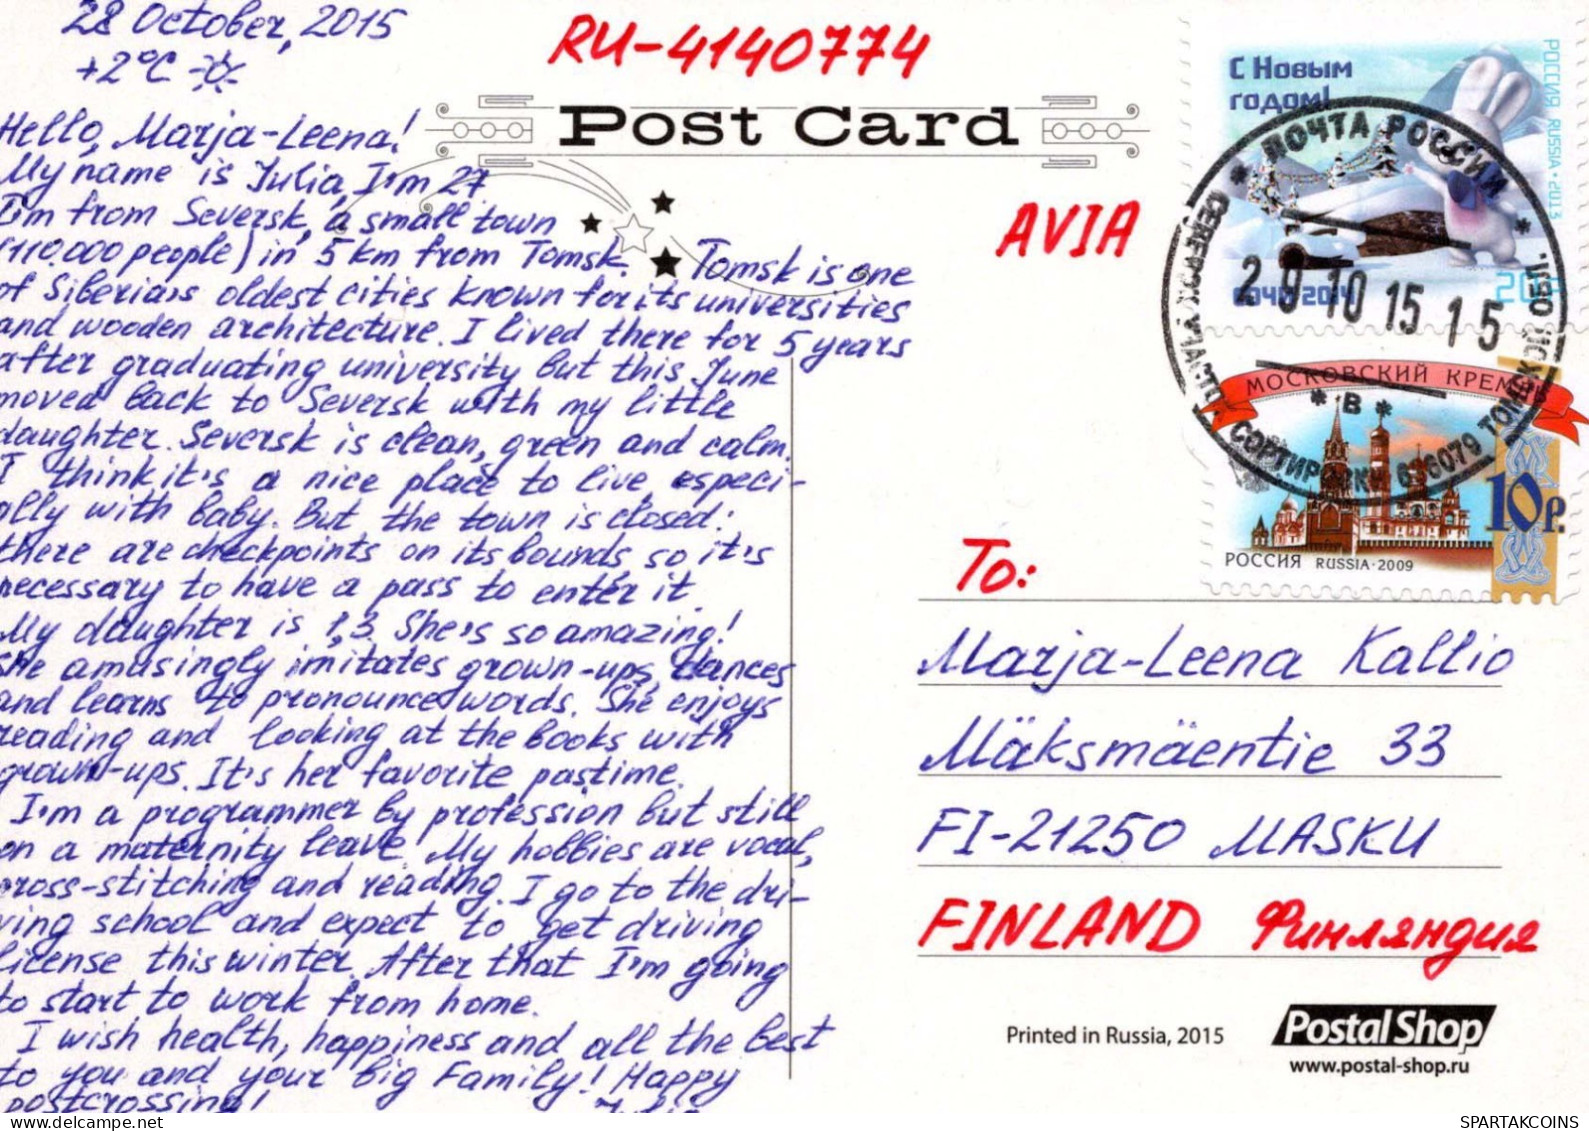 28 October, 2015
+2°C
RU-4140774
Post Card
AVIA
Hello, Marja-Leena!
My name is Julia, I'm 27
I'm from Seversk, a small town
(110.000 people) in 5 km from Tomsk. Tomsk is one
of Siberia's oldest cities known for its universities
and wooden architecture. I lived there for 5 years
after graduating university but this June
moved back to Seversk with my little
daughter. Seversk is clean, green and calm.
I think it's a nice place to live, especi-
ally with baby. But the town is closed:
there are checkpoints on its bounds so it's
necessary to have a pass to enter it.
My daughter is 1,3. She's so amazing!
She amusingly imitates grown-ups, dances
and learns to pronounce words. She enjoys
reading and looking at the books with
grown-ups. It's her favorite pastime.
I'm a programmer by profession but still
on a maternity leave. My hobbies are vocal,
cross-stitching and reading. I go to the dri-
ving school and expect to get driving
license this winter. After that I'm going
to start to work from home.
I wish health, happiness and all the best
to you and your big Family! Happy
postcrossing!
Julia
С Новым
годом!
РОССИЯ RUSSIA • 2013
СОЧИ 2014
ПОЧТА РОССИИ
29 10 15 15
В
МОСКОВСКИЙ КРЕМЛЬ
10 р.
РОССИЯ RUSSIA • 2009
To:
Marja-Leena Kallio
Mäksmäentie 33
FI-21250 MASKU
FINLAND Финляндия
Printed in Russia, 2015
Postal Shop
www.postal-shop.ru
SPARTAKCOINS